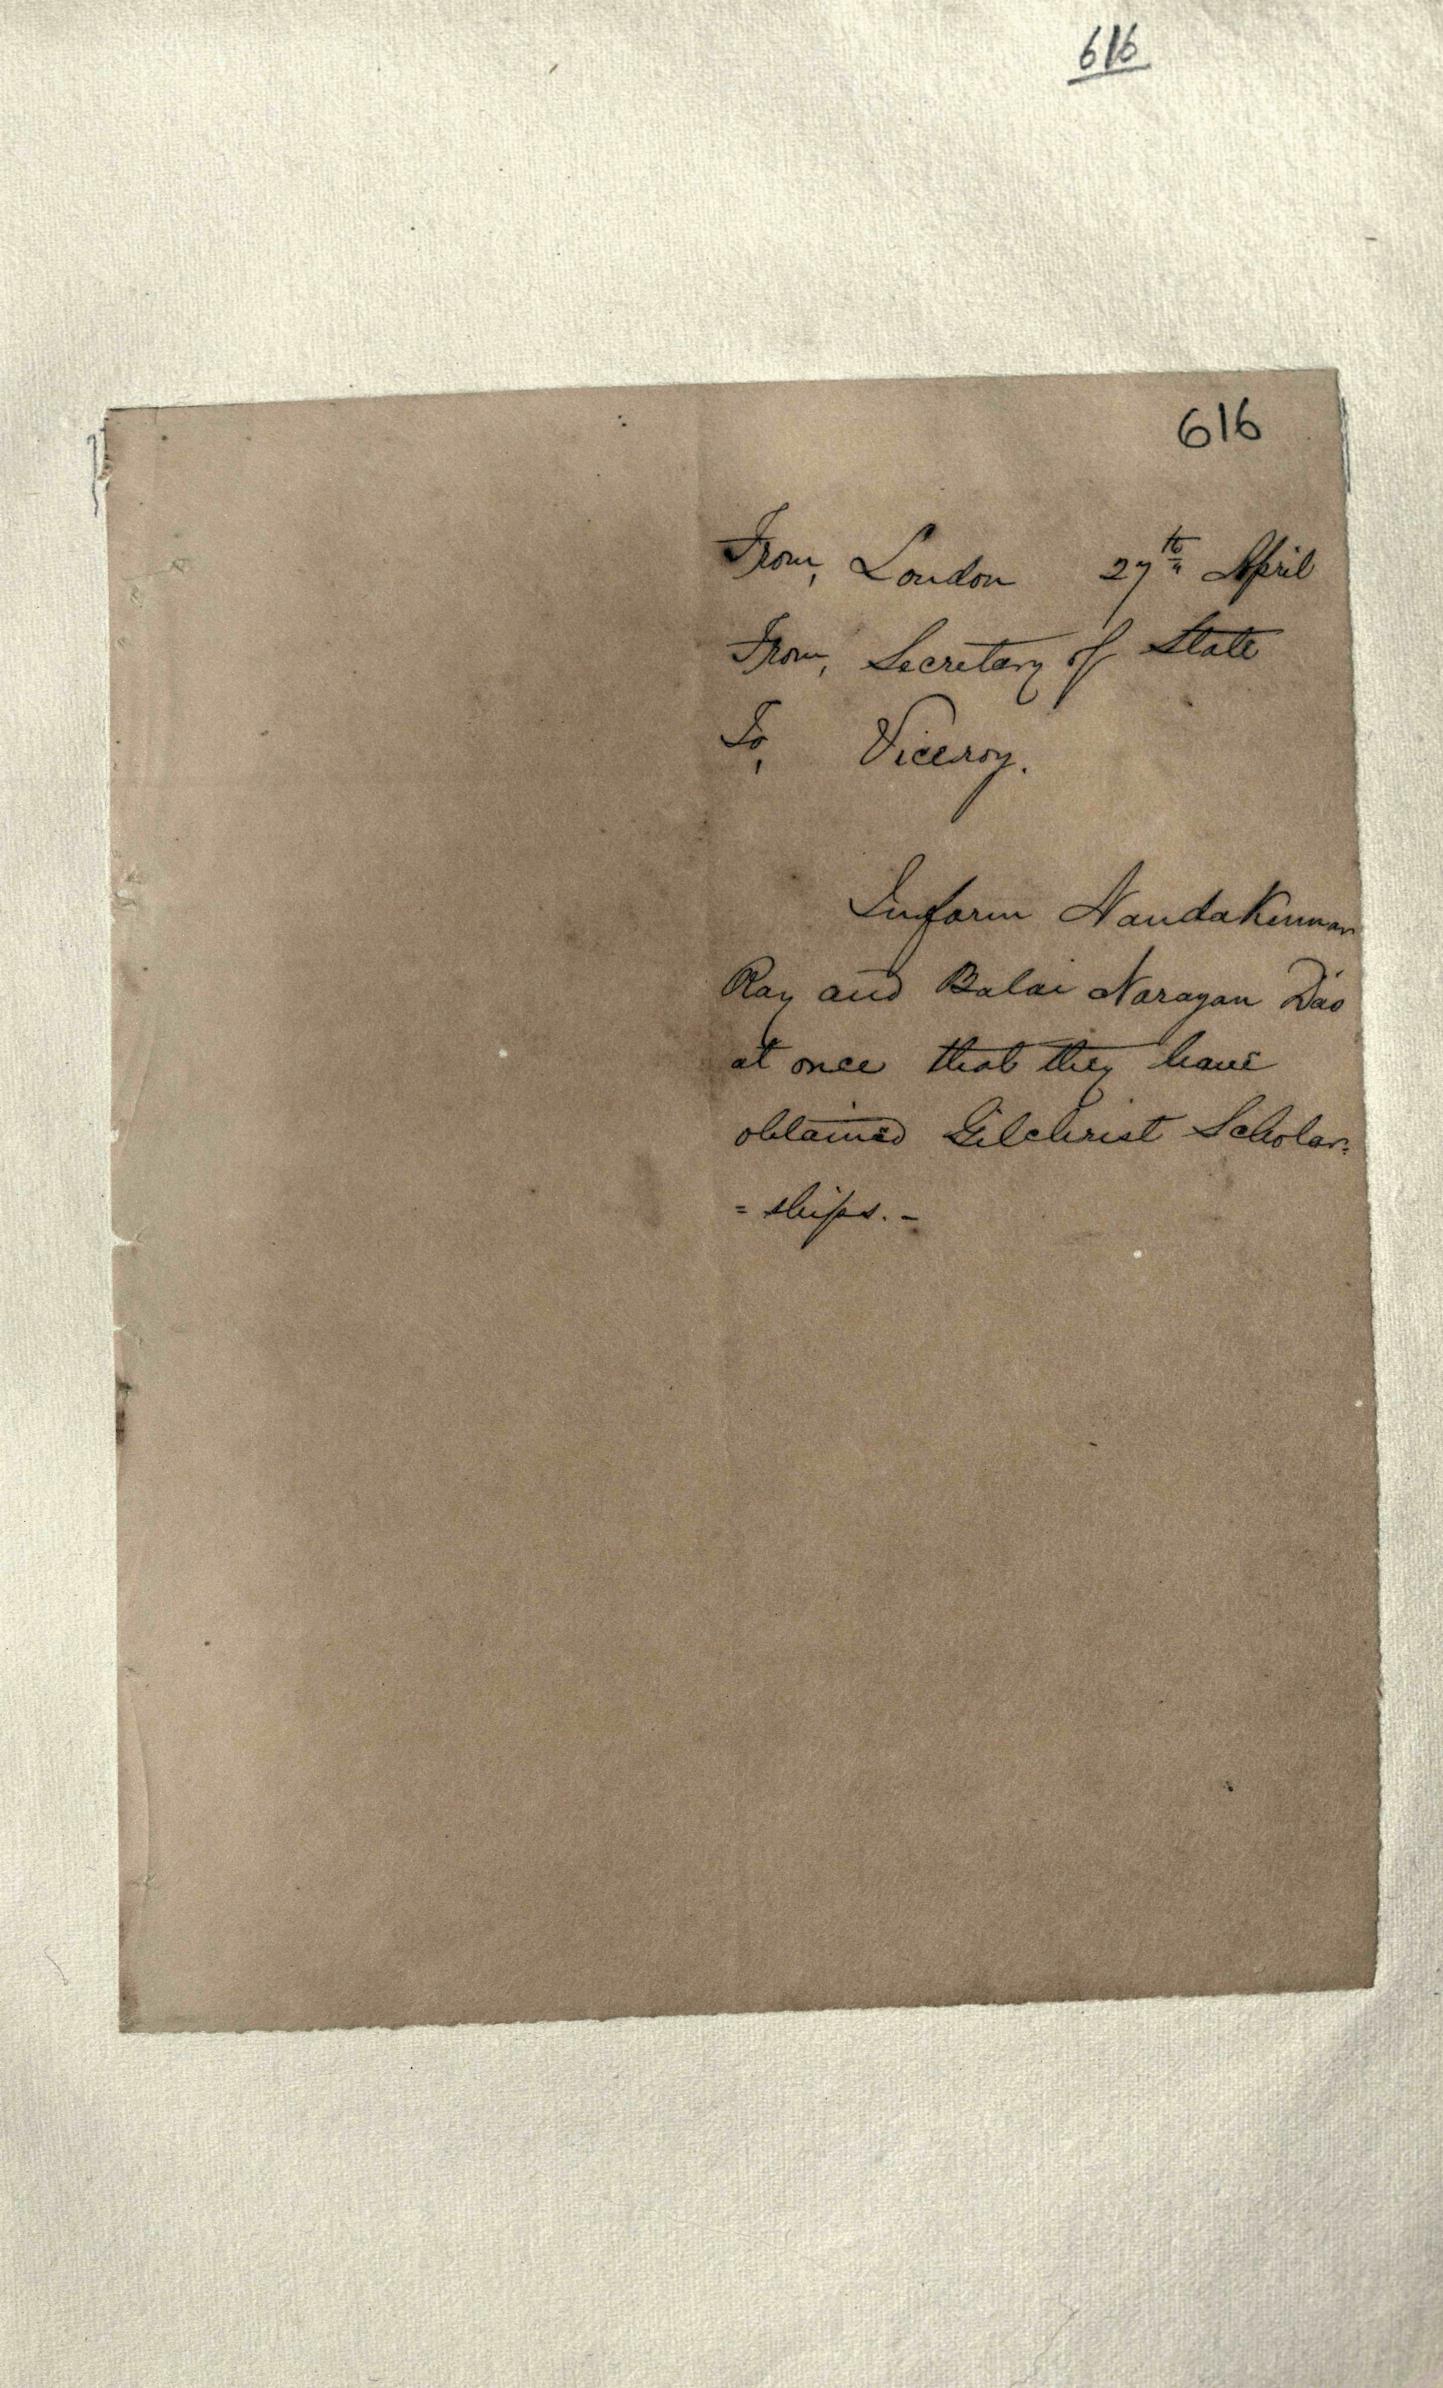 616
616
From, London 27th April
From, Secretary of State
To, Viceroy.
Inform Nanda Kumar
Ray and Balai Narayan Das
at once that they have
obtained Gilchrist Scholar-
= ships. -